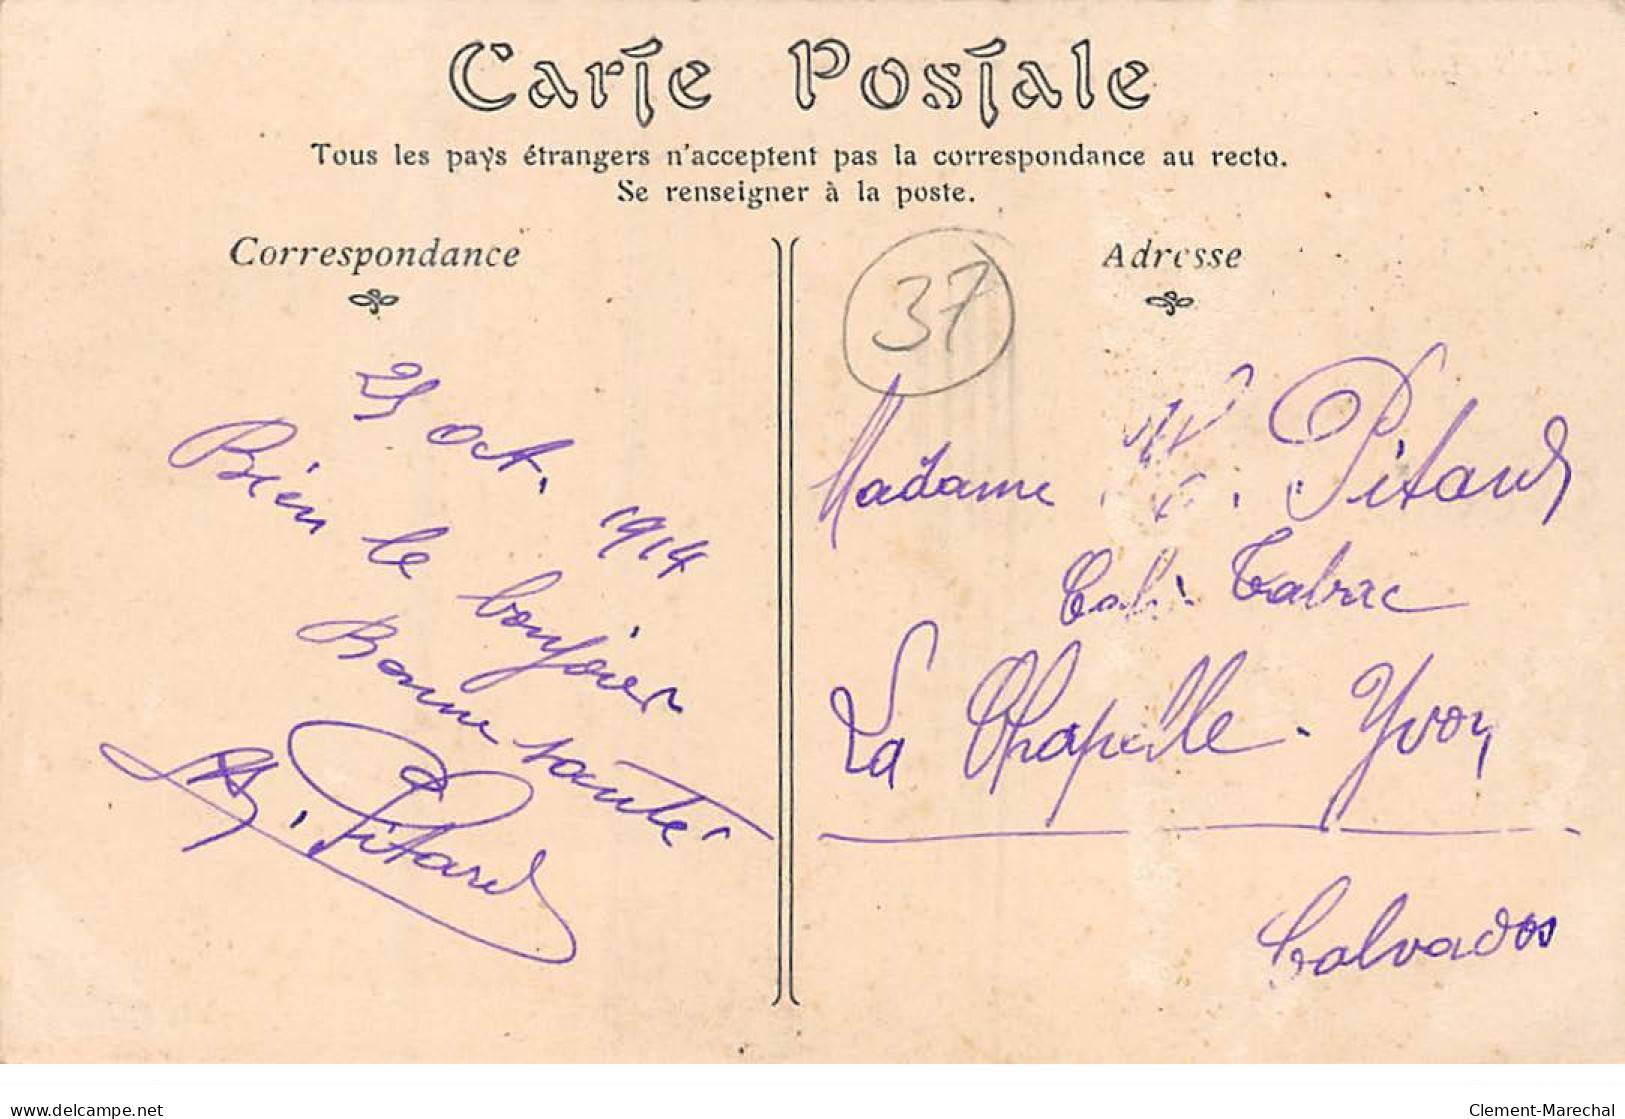 Carte Postale
Tous les pays étrangers n'acceptent pas la correspondance au recto.
Se renseigner à la poste.
Correspondance
Adresse
37
oct. 1914
Bien le bonjour
Bonne santé
Pitard
Madame Pitard
Tabac
La Chapelle-Yvon
Calvados
delcampe.net
Clement-Marechal